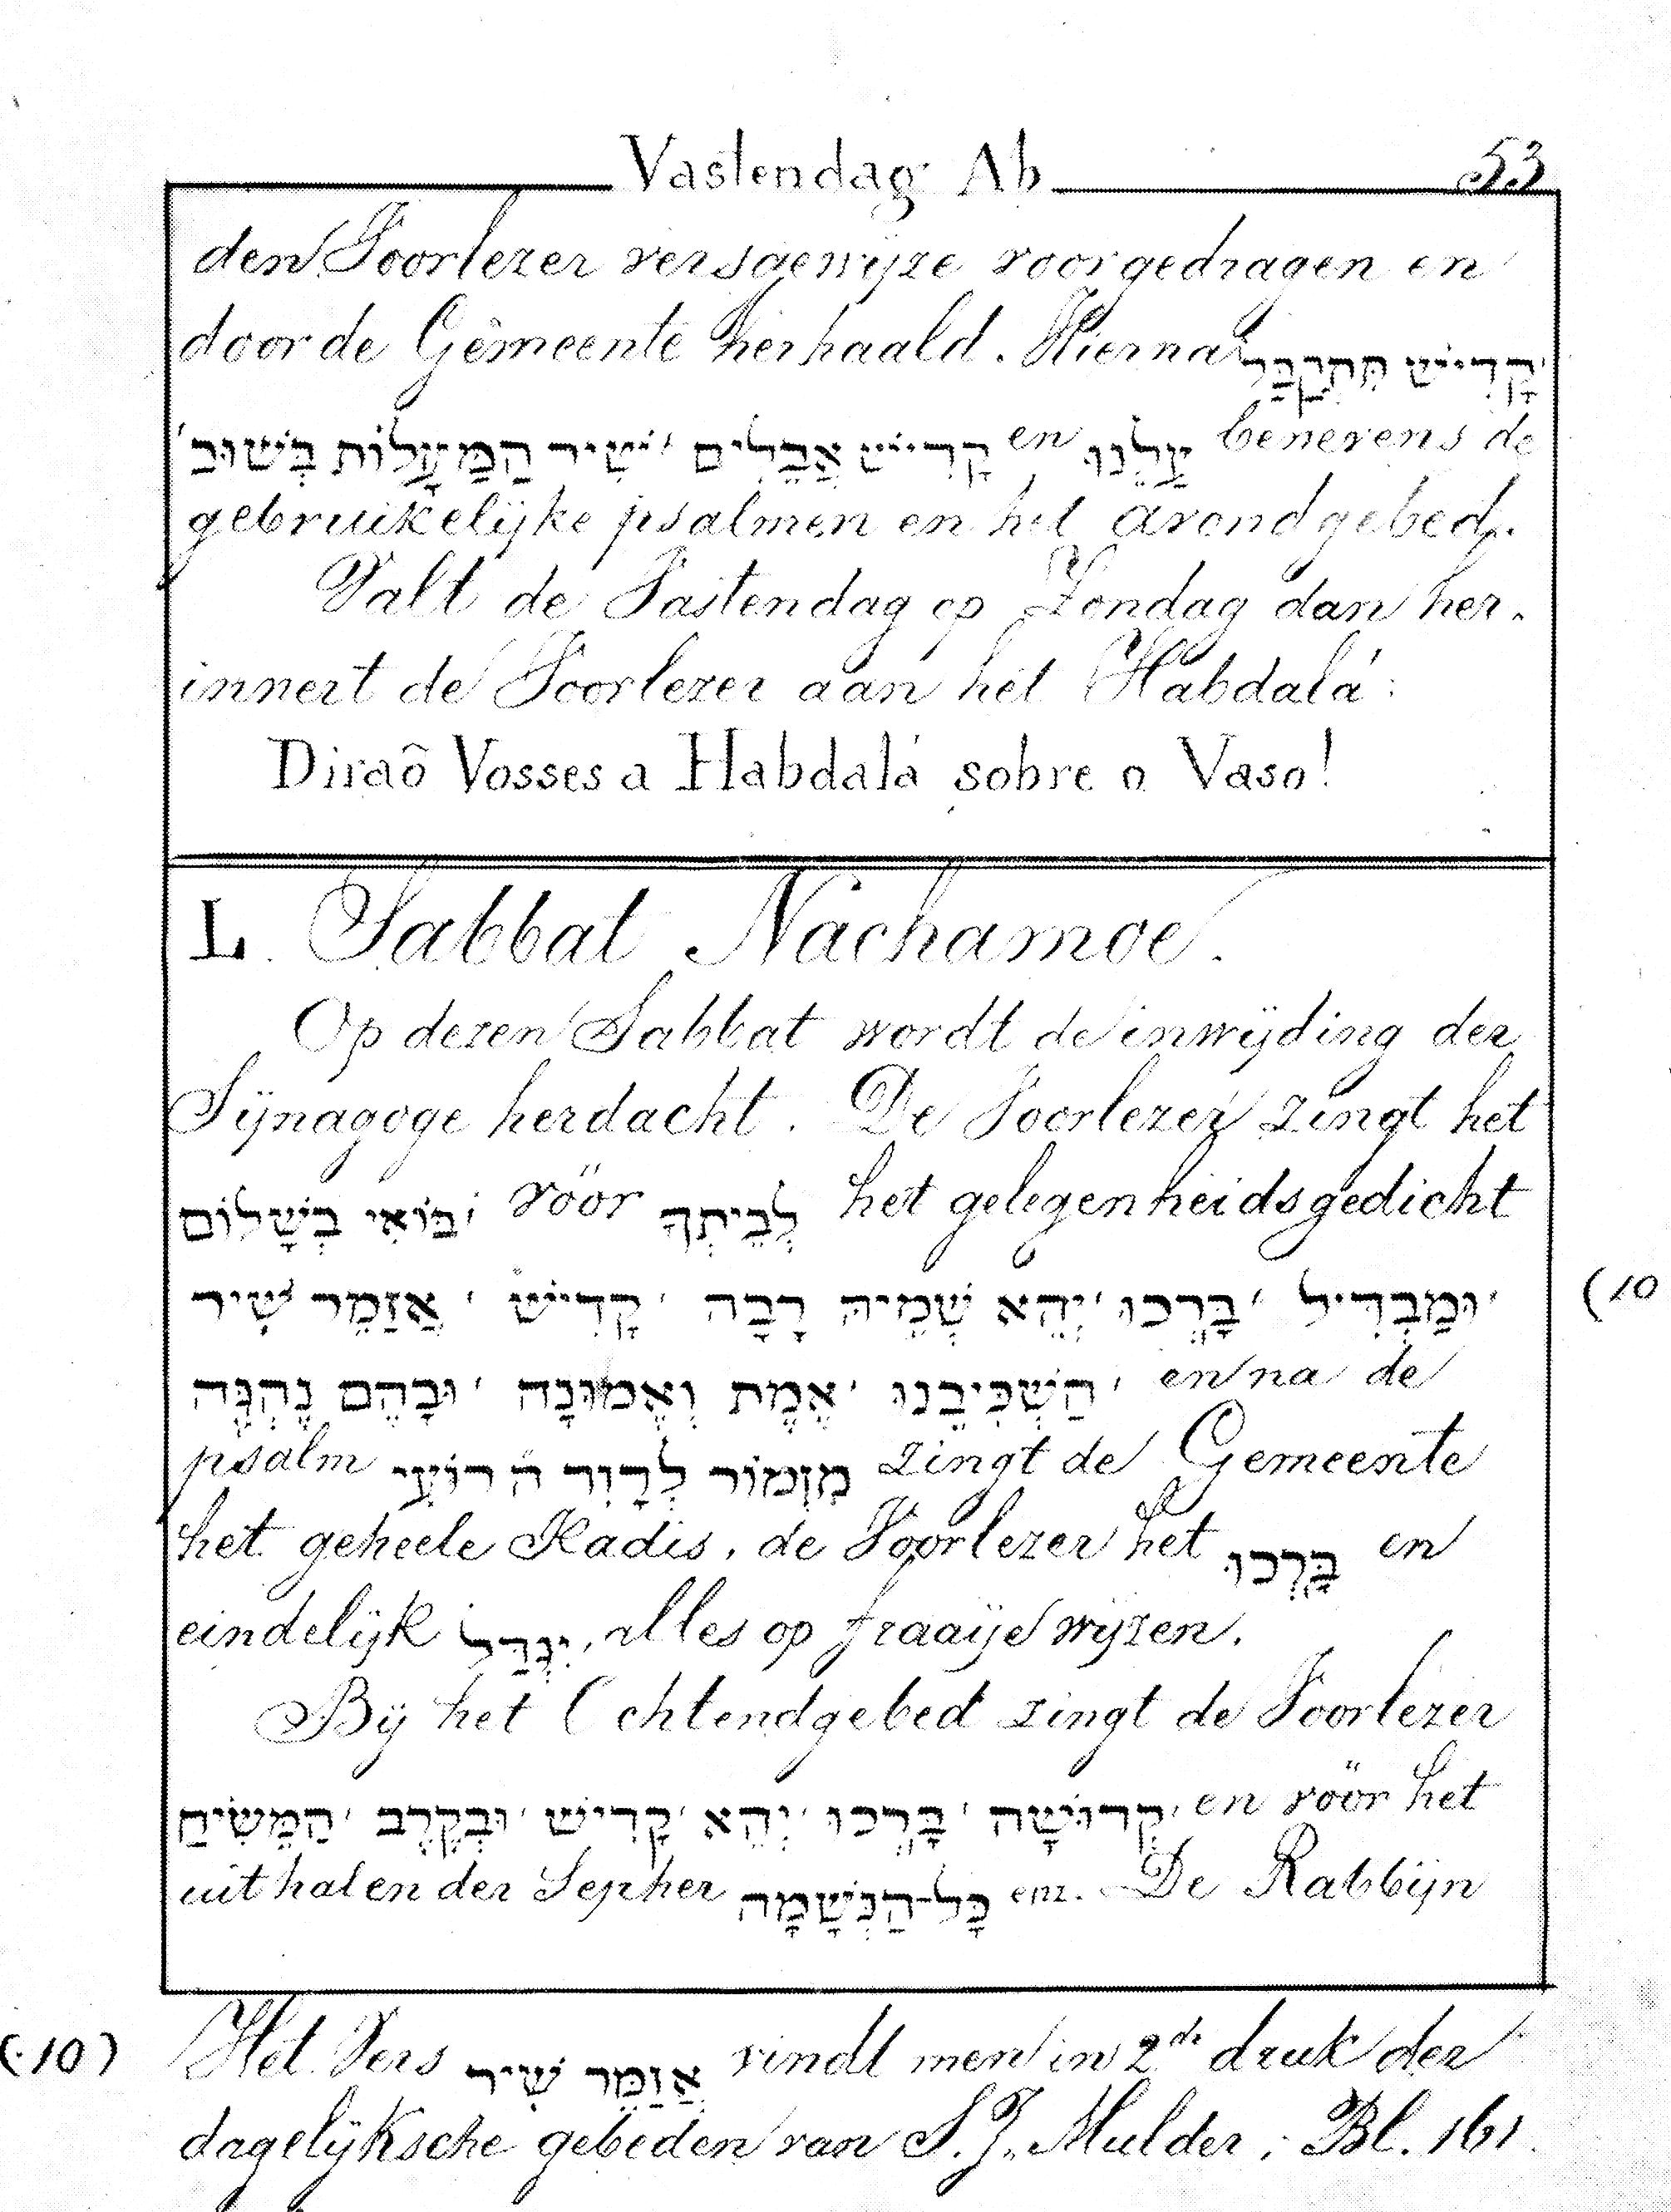 Vastendag Ab 53
den Voorlezer versgewijze voorgedragen en
door de Gemeente herhaald. Hierna קַדִּישׁ תִּתְקַבַּל,
שִׁיר הַמַּעֲלוֹת בְּשׁוּב, קַדִּישׁ אֲבֵלִים en עָלֵנוּ benevens de
gebruikelijke psalmen en het avondgebed.
Valt de Vastendag op Zondag dan her-
innert de Voorlezer aan het Habdalá:
Diraõ Vosses a Habdalá sobre o Vaso!
L. Sabbat Nachamoe.
Op dezen Sabbat wordt de inwijding der
Sijnagoge herdacht. De Voorlezer zingt het
בּוֹאִי בְשָׁלוֹם; vóór לְבֵיתְךָ het gelegenheidsgedicht
אֲזַמֵּר שִׁיר, קַדִּישׁ, יְהֵא שְׁמֵיהּ רַבָּה, בָּרְכוּ, וּמַבְדִּיל,
וּבָהֶם נֶהְגֶּה, אֱמֶת וֶאֱמוּנָה, הַשְׁכִּיבֵנוּ, en na de
psalm מִזְמוֹר לְדָוִד ה׳ רוֹעִי zingt de Gemeente
het geheele Kadis, de Voorlezer het בָּרְכוּ en
eindelijk יִגְדַּל, alles op fraaije wijzen.
Bij het Ochtendgebed zingt de Voorlezer
הַמֵּשִׂיחַ, וּבְקֶרֶב, קַדִּישׁ, יְהֵא, בָּרְכוּ, קְדוּשָׁה, en vóór het
uithalen der Sepher כָּל-הַנְּשָׁמָה enz. De Rabbijn
(10
(10) Het Vers אֲזַמֵּר שִׁיר vindt men in 2de druk der
dagelijksche gebeden van S.J. Mulder, Bl. 161.